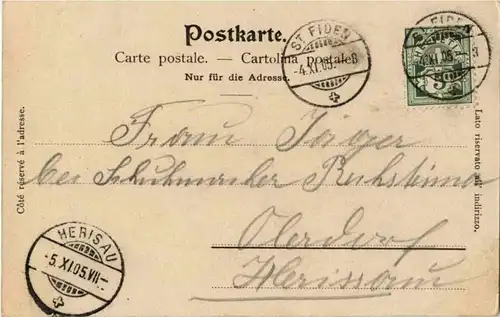 Postkarte.
Carte postale. — Cartolina postale
Nur für die Adresse.
ST. FIDEN
-4.XI.05. B
ST. FIDEN
5
Côté réservé à l'adresse.
Lato riservato all' indirizzo.
Frau
bei Schuhmacher
Oberdorf
Herisau
HERISAU
-5.XI.05.VII-